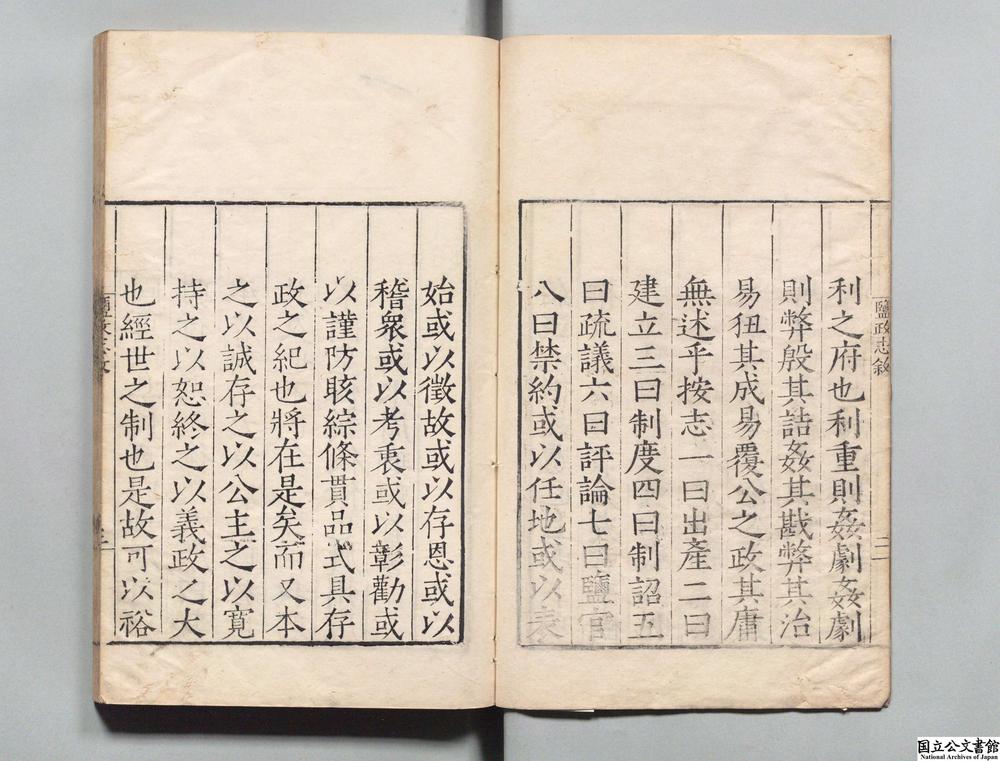 鹽政志敘
二
利之府也利重則姦劇姦劇
則弊殷其詰姦其戡弊其治
易狃其成易覆公之政其庸
無述乎按志一曰出產二曰
建立三曰制度四曰制詔五
曰疏議六曰評論七曰鹽官
八曰禁約或以任地或以表
始或以徵故或以存恩或以
稽衆或以考衷或以彰勸或
以謹防晐綜條貫品式具存
政之紀也將在是矣而又本
之以誠存之以公主之以寬
持之以恕終之以義政之大
也經世之制也是故可以裕
三
国立公文書館
National Archives of Japan